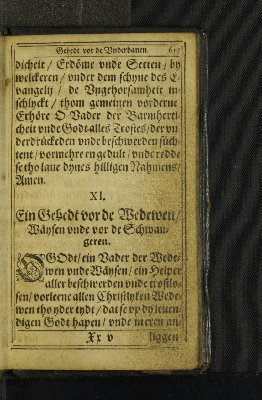 Gebedt vor de Underdanen.
dicheit / Erdöme unde Secten / by
welckeren / under dem schyne des E-
vangelij / de Ungehorsamheit in
schlyckt / thom gemeinen vorderue
Erhöre O Vader der Barmherti
cheit unde Godt alles Trostes / der un
derdrückeden unde beschwerden süch-
tent / vormehre en gedult / unde redde
se tho laue dynes hilligen Nahmens /
Amen.
XI.
Ein Gebedt vor de Wedewen /
Wäysen unde vor de Schwan-
geren.
O GOdt / ein Vader der Wede-
wen unde Wäysen / ein Helper
aller beschwerden unde trostlo-
sen / vorleene allen Christlyken Wede-
wen tho yder tydt / dat se up dy leuen-
digen Godt hapen / unde in eren an-
Xx v
liggen